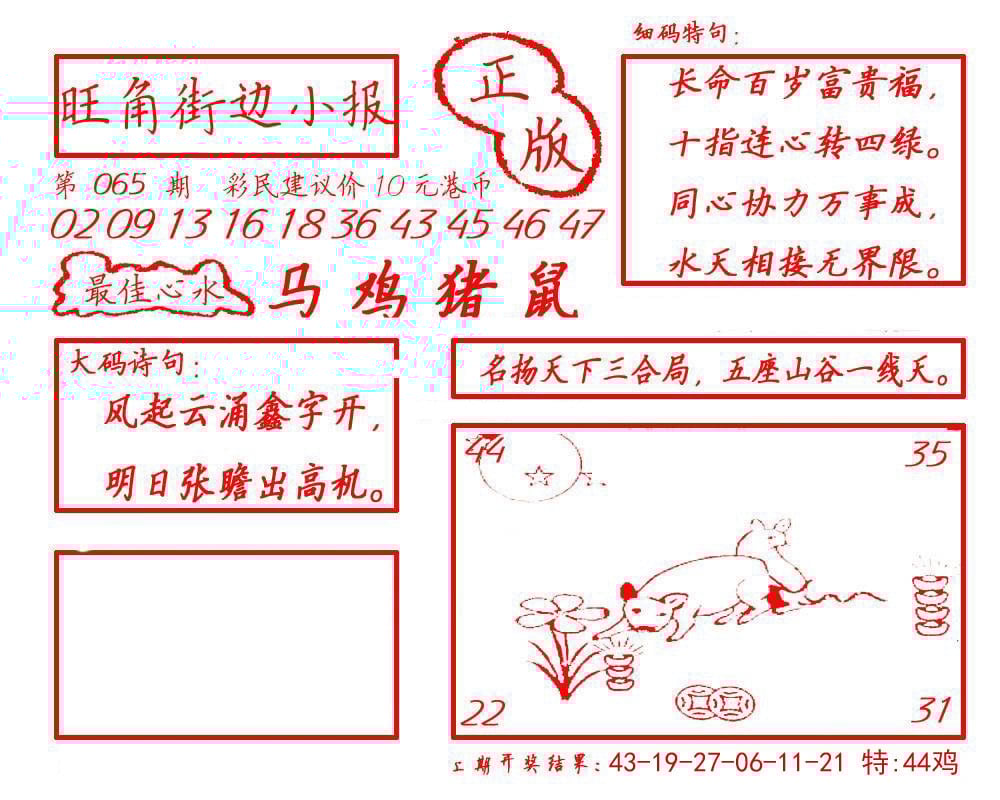 旺角街边小报
正版
第 065 期 彩民建议价 10 元港币
02 09 13 16 18 36 43 45 46 47
最佳心水 马 鸡 猪 鼠
细码特句：
长命百岁富贵福，
十指连心转四绿。
同心协力万事成，
水天相接无界限。
大码诗句：
风起云涌鑫字开，
明日张瞻出高机。
名扬天下三合局，五座山谷一线天。
44
35
22
31
上期开奖结果：43-19-27-06-11-21 特:44鸡